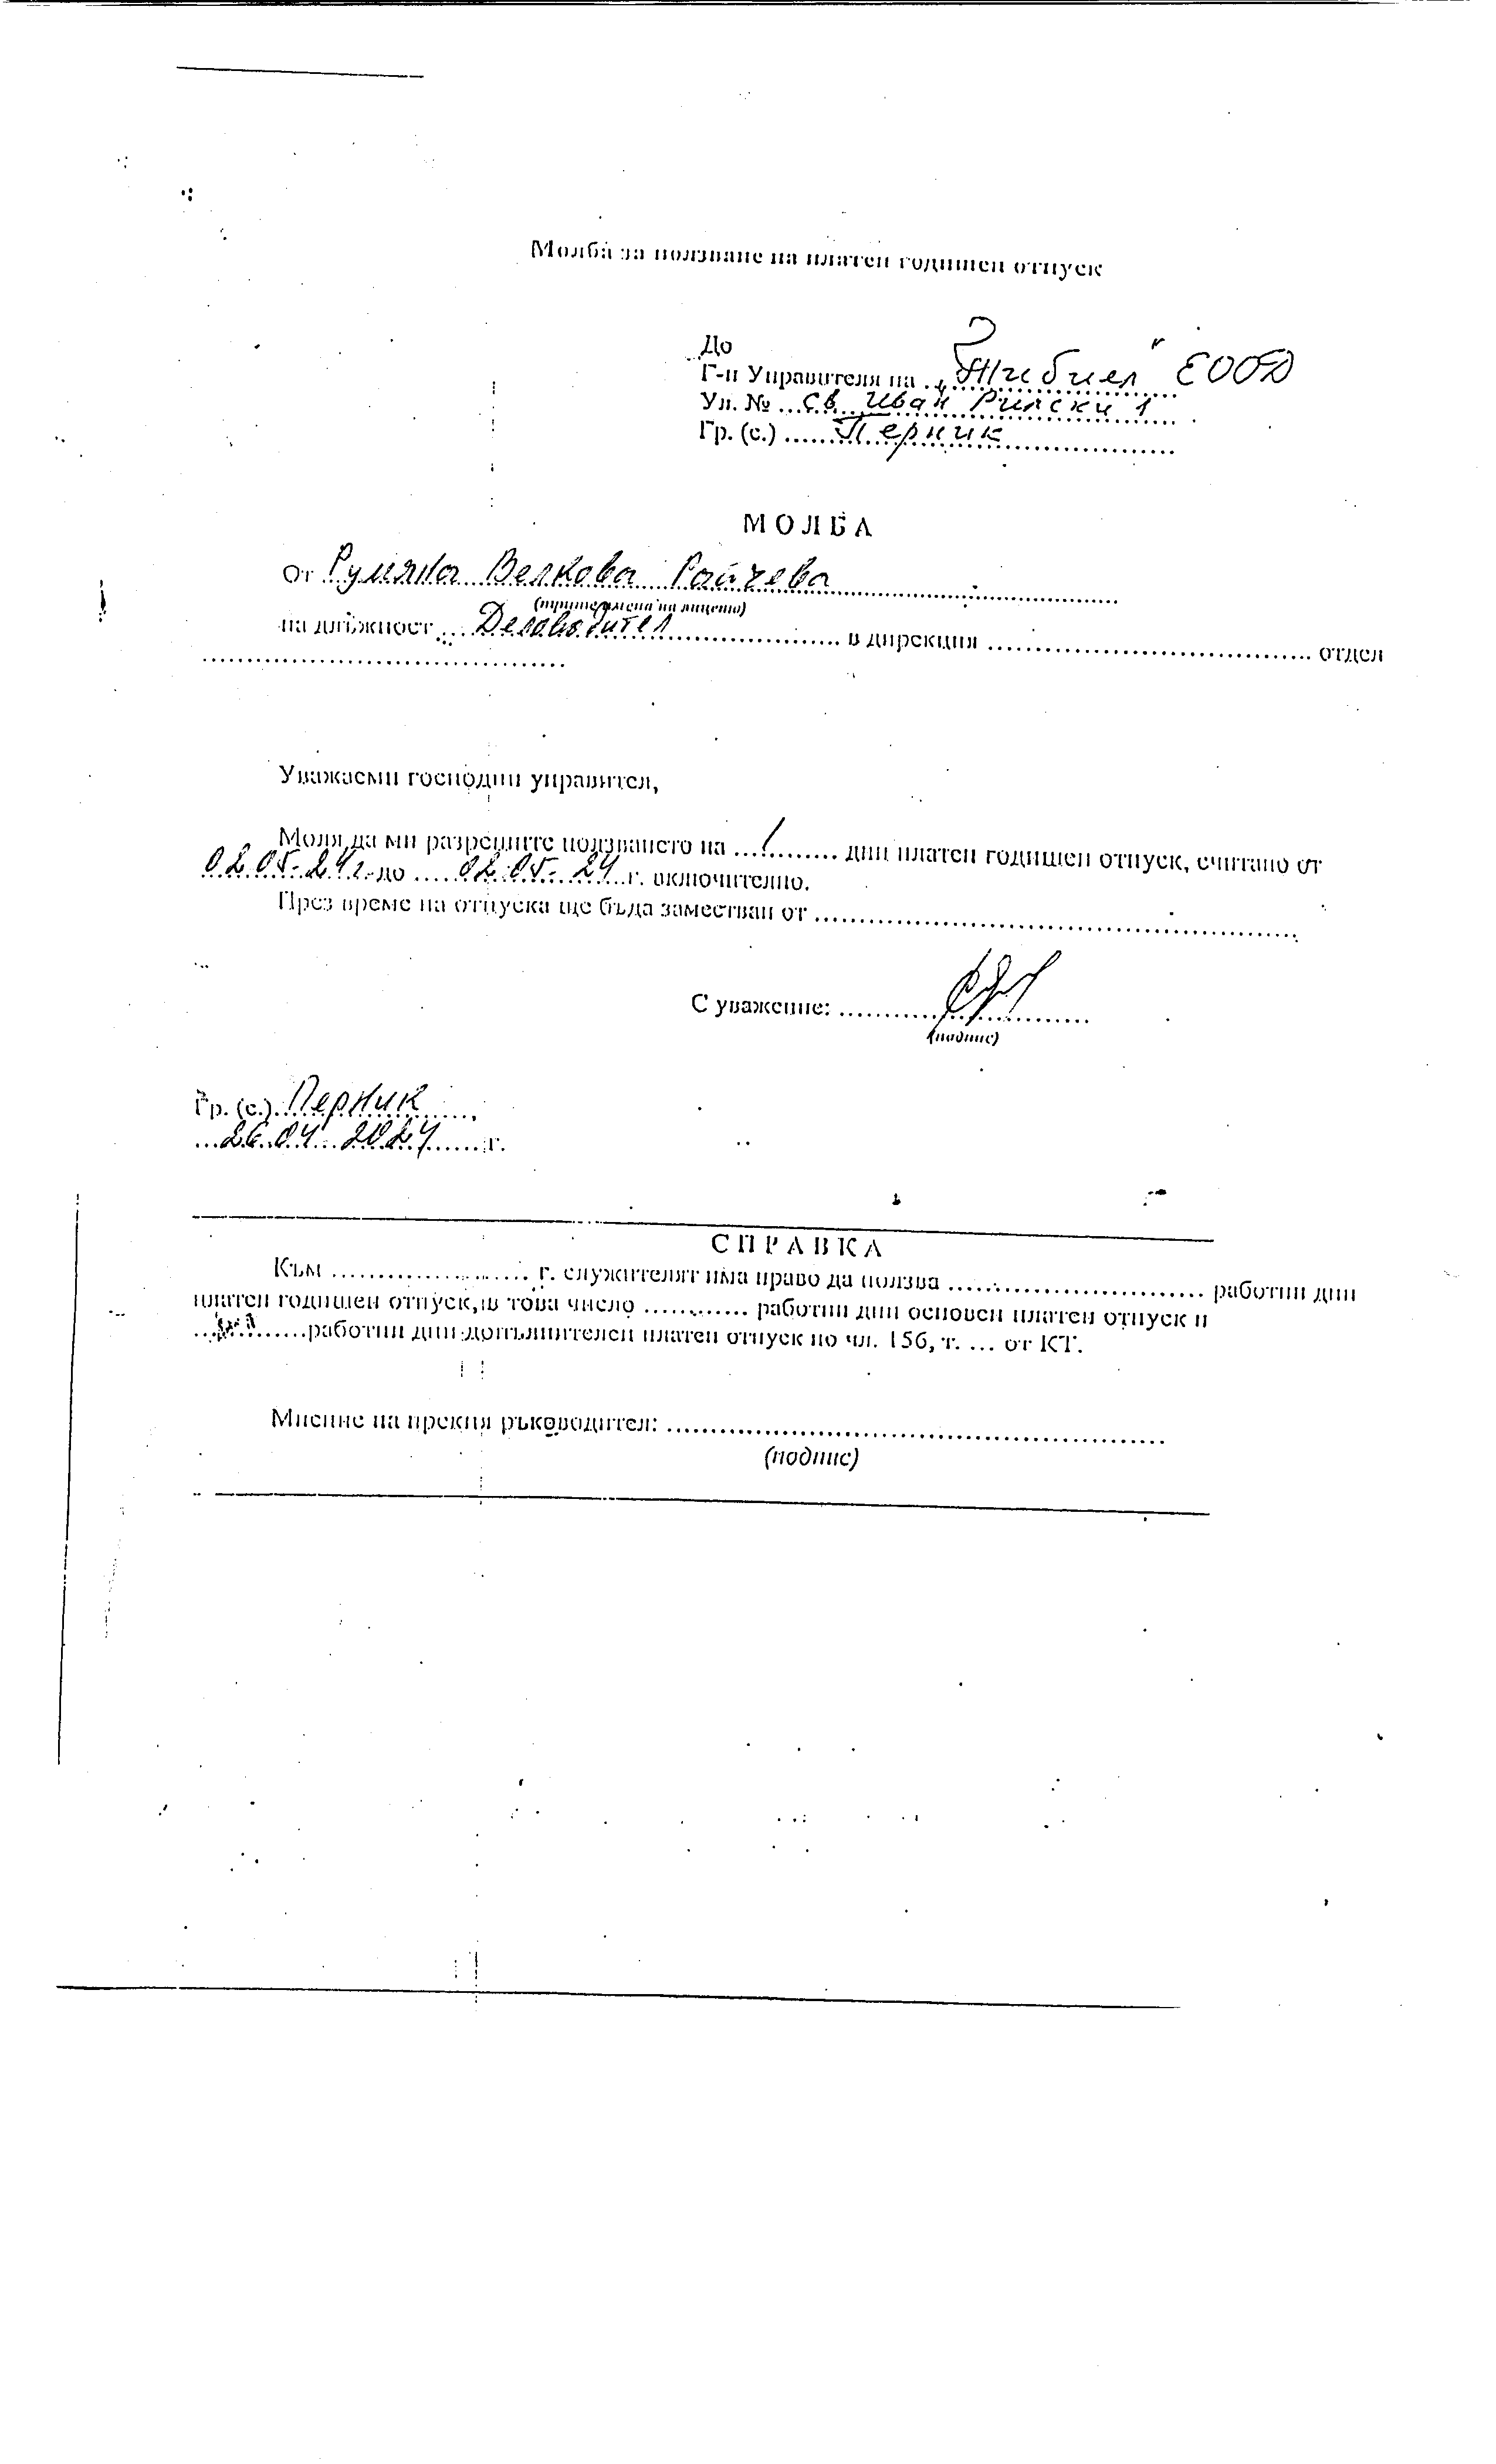 Молба за ползване на платен годишен отпуск
До
Г-н Управителя на „Жибиел" ЕООД
Ул. № Св. Иван Рилски 1
Гр. (с.) Перник
МОЛБА
От Румяна Велкова Райчева
(трите имена на лицето)
на длъжност Деловодител в дирекция отдел
Уважаеми господин управител,
Моля да ми разрешите ползването на 1 дни платен годишен отпуск, считано от
02.05.24 г. до 02.05.24 г. включително.
През време на отпуска ще бъда заместван от
С уважение:
(подпис)
Гр. (с.) Перник,
26.04.2024 г.
СПРАВКА
Към г. служителят има право да ползва работни дни
платен годишен отпуск, в това число работни дни основен платен отпуск и
работни дни допълнителен платен отпуск по чл. 156, т. ... от КТ.
Мнение на прекия ръководител:
(подпис)